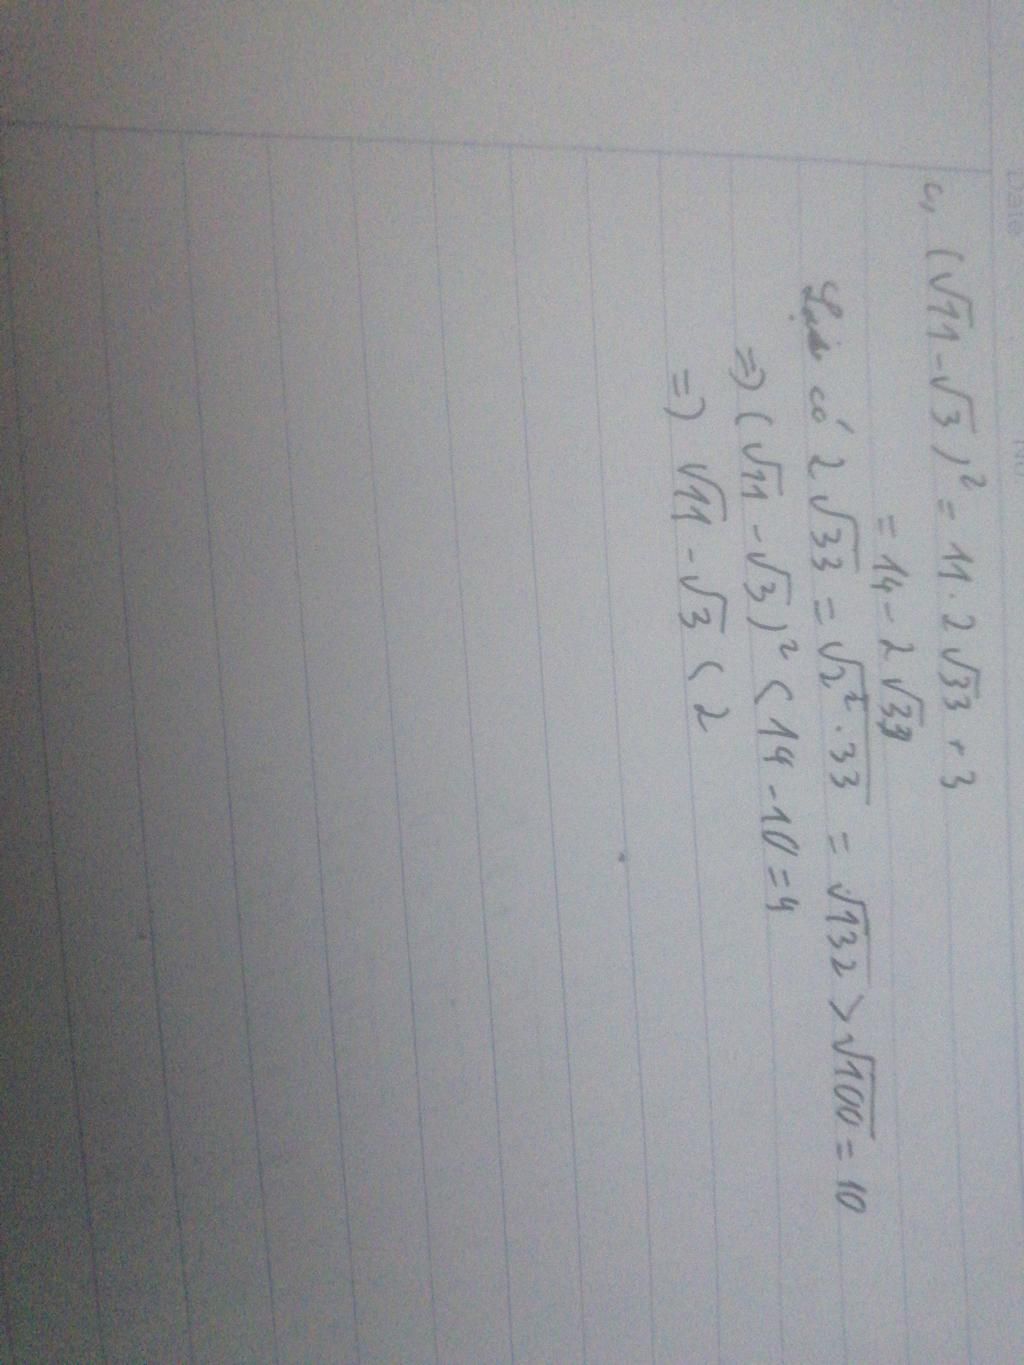 Date
No.
c, (√11-√3)² = 11. 2√33 + 3
= 14 - 2√33
Lại có 2√33 = √2².33 = √132 > √100 = 10
=) (√11 - √3)² < 14 - 10 = 4
=) √11 - √3 < 2